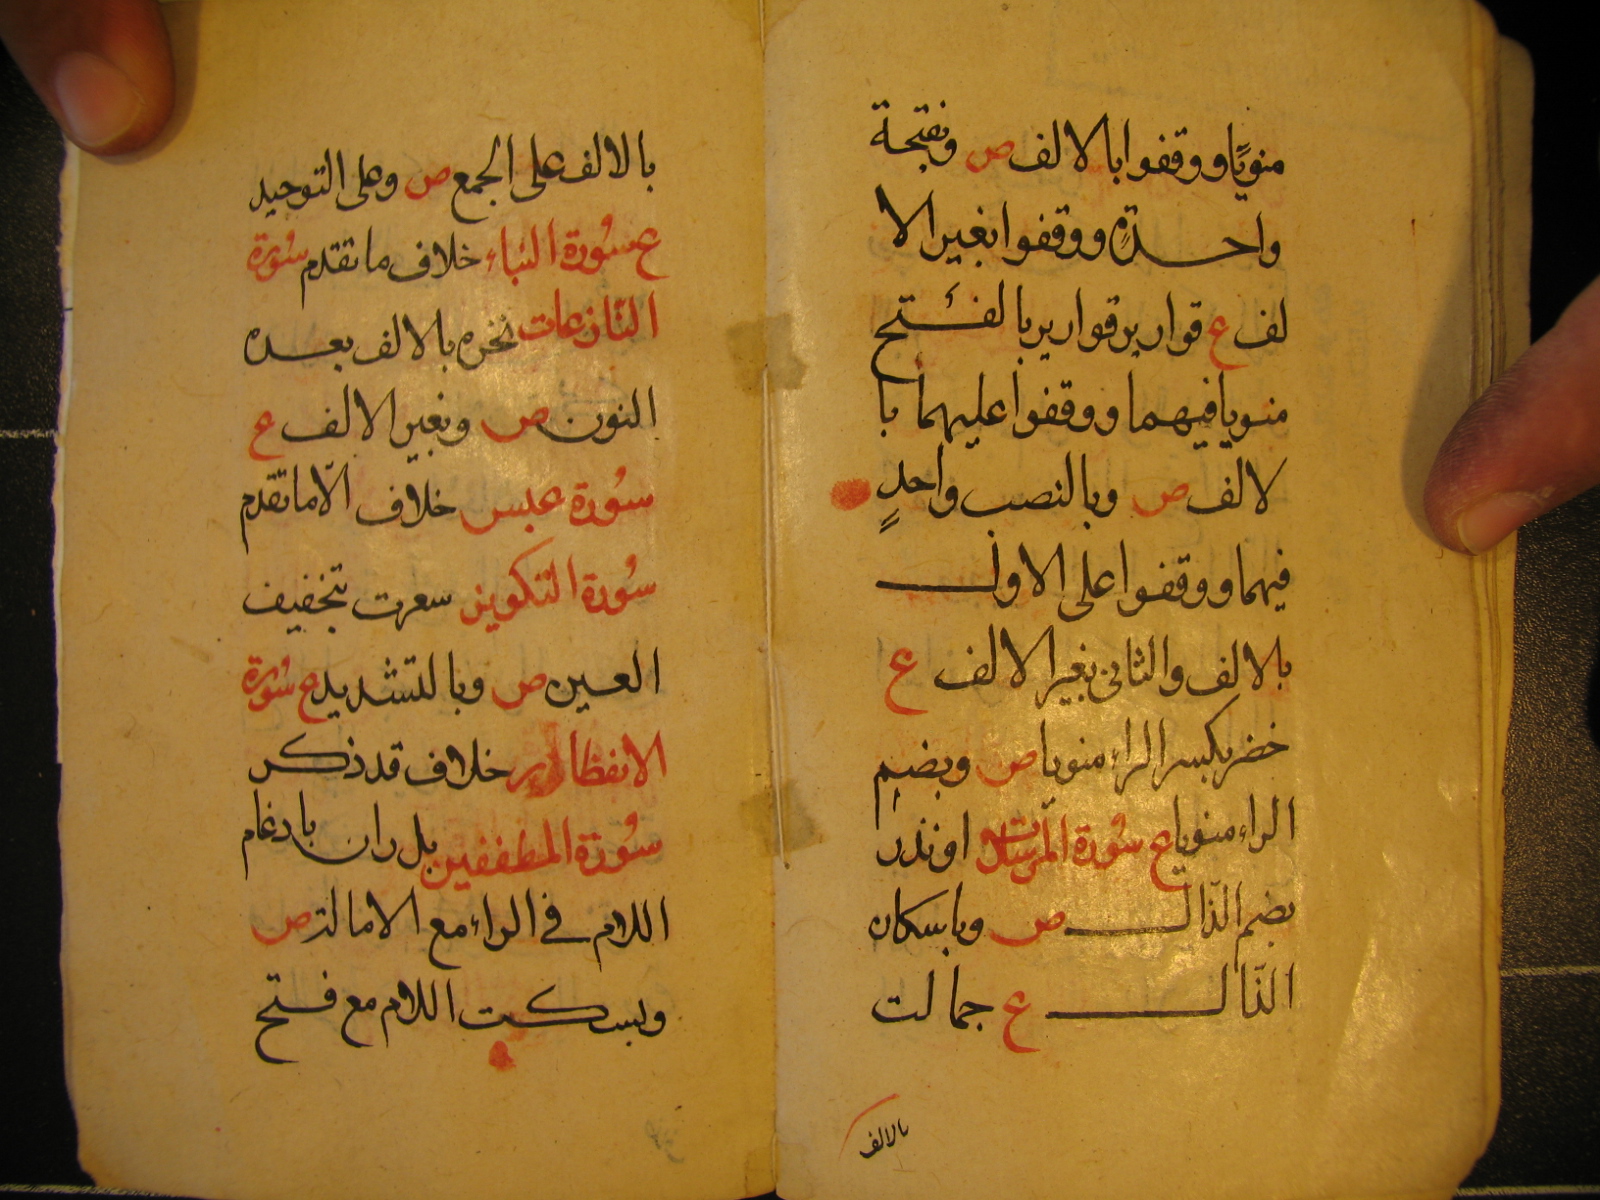 منويًا ووقفوا بالالف ص وبفتحة
واحدةٍ ووقفوا بغير الا
لف ع قوارير قوارير بالفتح
منويا فيهما ووقفوا عليهما با
لالف ص وبالنصب واحدٍ
فيهما ووقفوا على الاول
بالالف والثاني بغير الالف ع
خضر بكسر الراء منويا ص وبضم
الراء منويا ع سورة المرسلات او نذر
بضم الذال ص وباسكان
الذال ع جمالت
بالالف
بالالف على الجمع ص وعلى التوحيد
ع سورة النباء خلاف ما تقدم سورة
النازعات نخره بالالف بعده
النون ص وبغير الالف ع
سورة عبس خلاف الا ما تقدم
سورة التكوير سعرت بتخفيف
العين ص وبالتشديد ع سورة
الانفطار خلاف قد ذكر
سورة المطففين بل ران بادغام
اللام في الراء مع الامالة ص
وبسكت اللام مع فتح